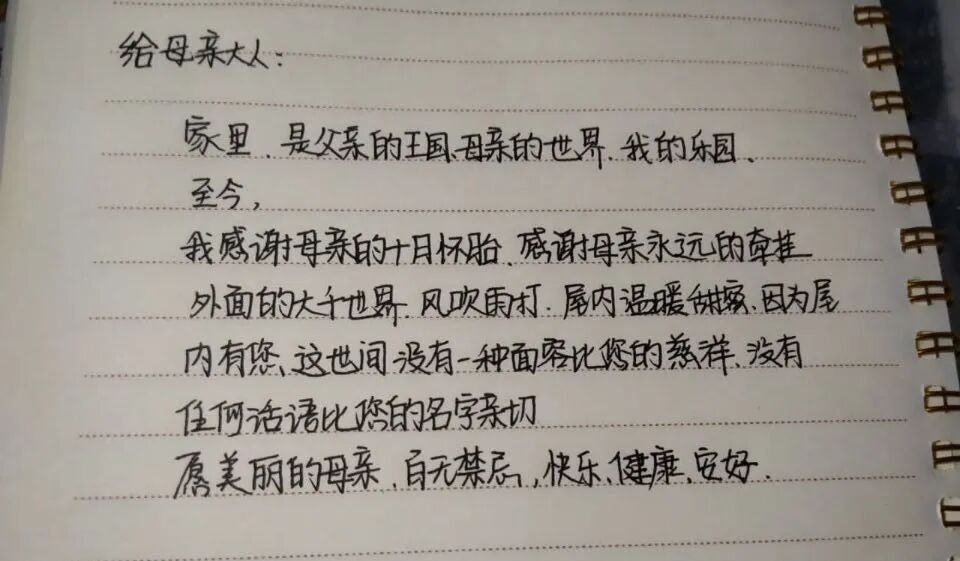 给母亲大人:
家里、是父亲的王国、母亲的世界、我的乐园、
至今,
我感谢母亲的十月怀胎、感谢母亲永远的牵挂
外面的大千世界、风吹雨打、屋内温暖甜蜜、因为屋
内有您、这世间没有一种面容比您的慈祥、没有
任何话语比您的名字亲切
愿美丽的母亲、百无禁忌,快乐、健康、安好、